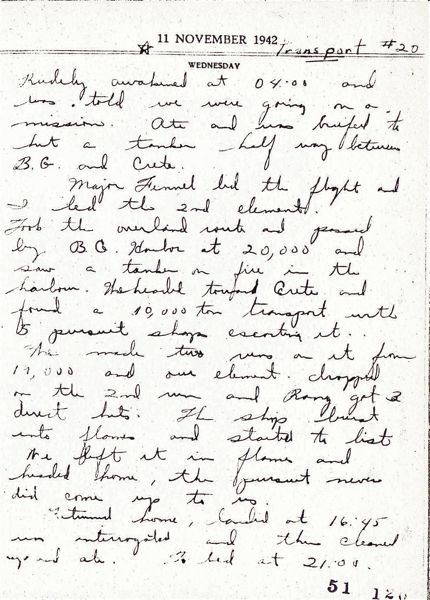 11 NOVEMBER 1942 Transport #20
WEDNESDAY
Rudely awakened at 04:00 and
was told we were going on a
mission. Ate and was briefed to
hit a tanker half way between
B.G. and Crete.
Major Fennel led the flight and
I led the 2nd element.
Took the overland route and passed
by B.G. Harbor at 20,000 and
saw a tanker on fire in the
harbor. We headed toward Crete and
found a 10,000 ton transport with
5 pursuit ships escorting it.
We made two runs on it from
and our element dropped
on the 2nd run and Rang got 2
direct hits. The ship burst
into flames and started to list
We left it in flames and
headed home, the pursuit never
did come up to us.
Returned home, landed at 16:45
was interrogated and then cleaned
up and ate. To bed at 21:00.
51 120